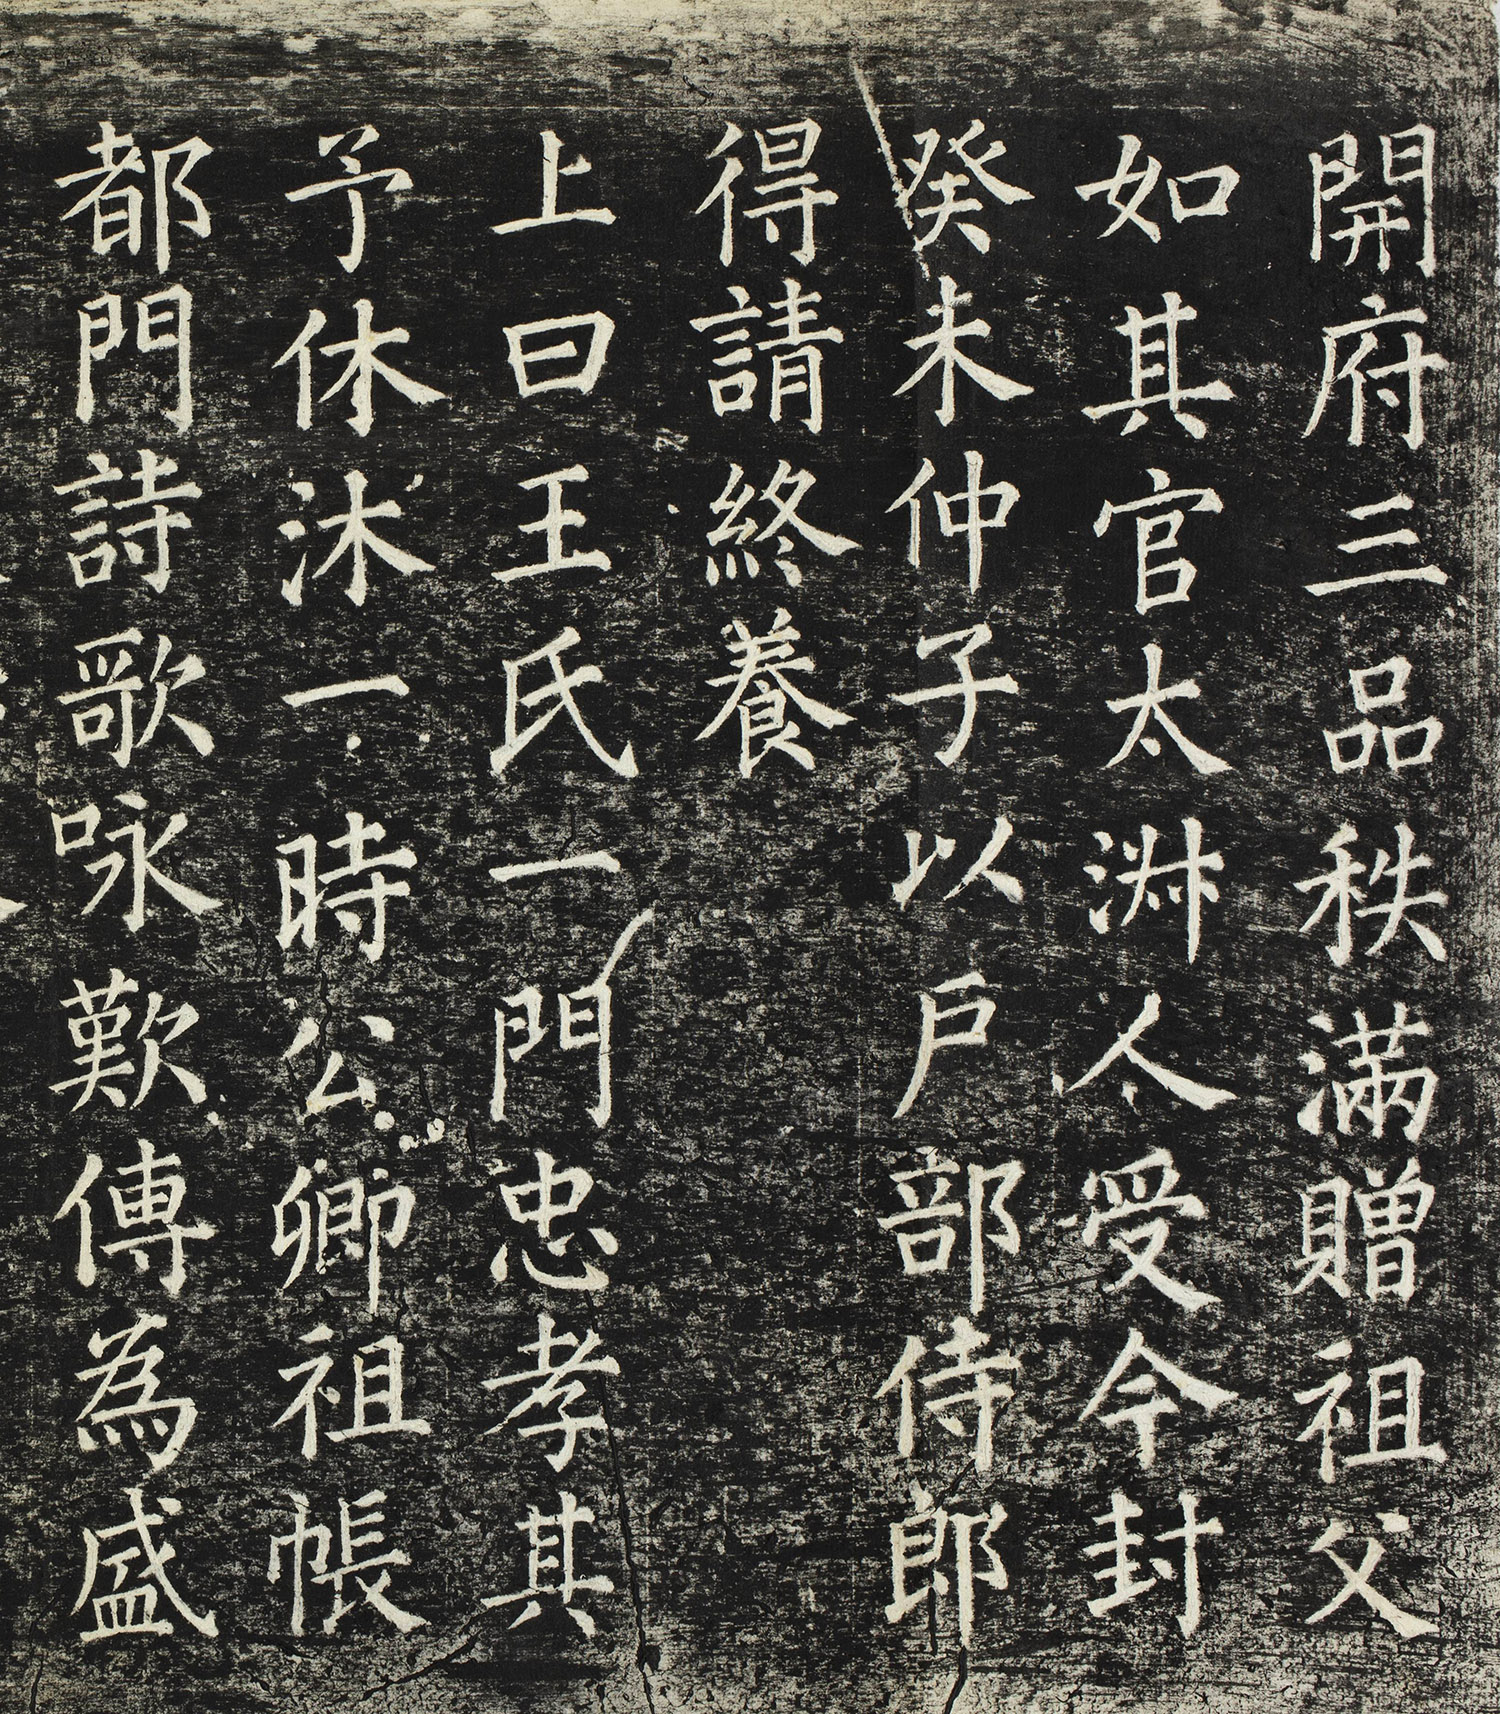 開府三品秩滿贈祖父
如其官太淋人受今封
癸未仲子以戶部侍郎
得請終養
上曰王氏一門忠孝其
予休沐一時公卿祖帳
都門詩歌咏歎傳為盛